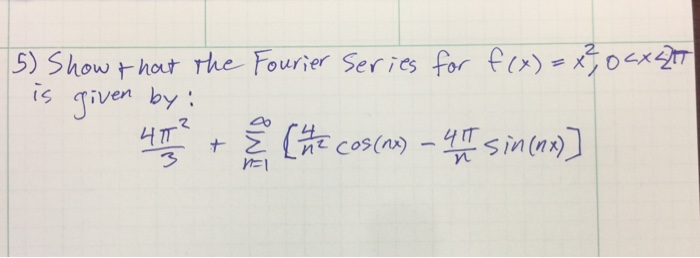 5) Show that the Fourier Series for f(x) = x², 0<x<2π
is given by:
4π²/3 + ∞Σn=1 [4/n² cos(nx) - 4π/n sin(nx)]